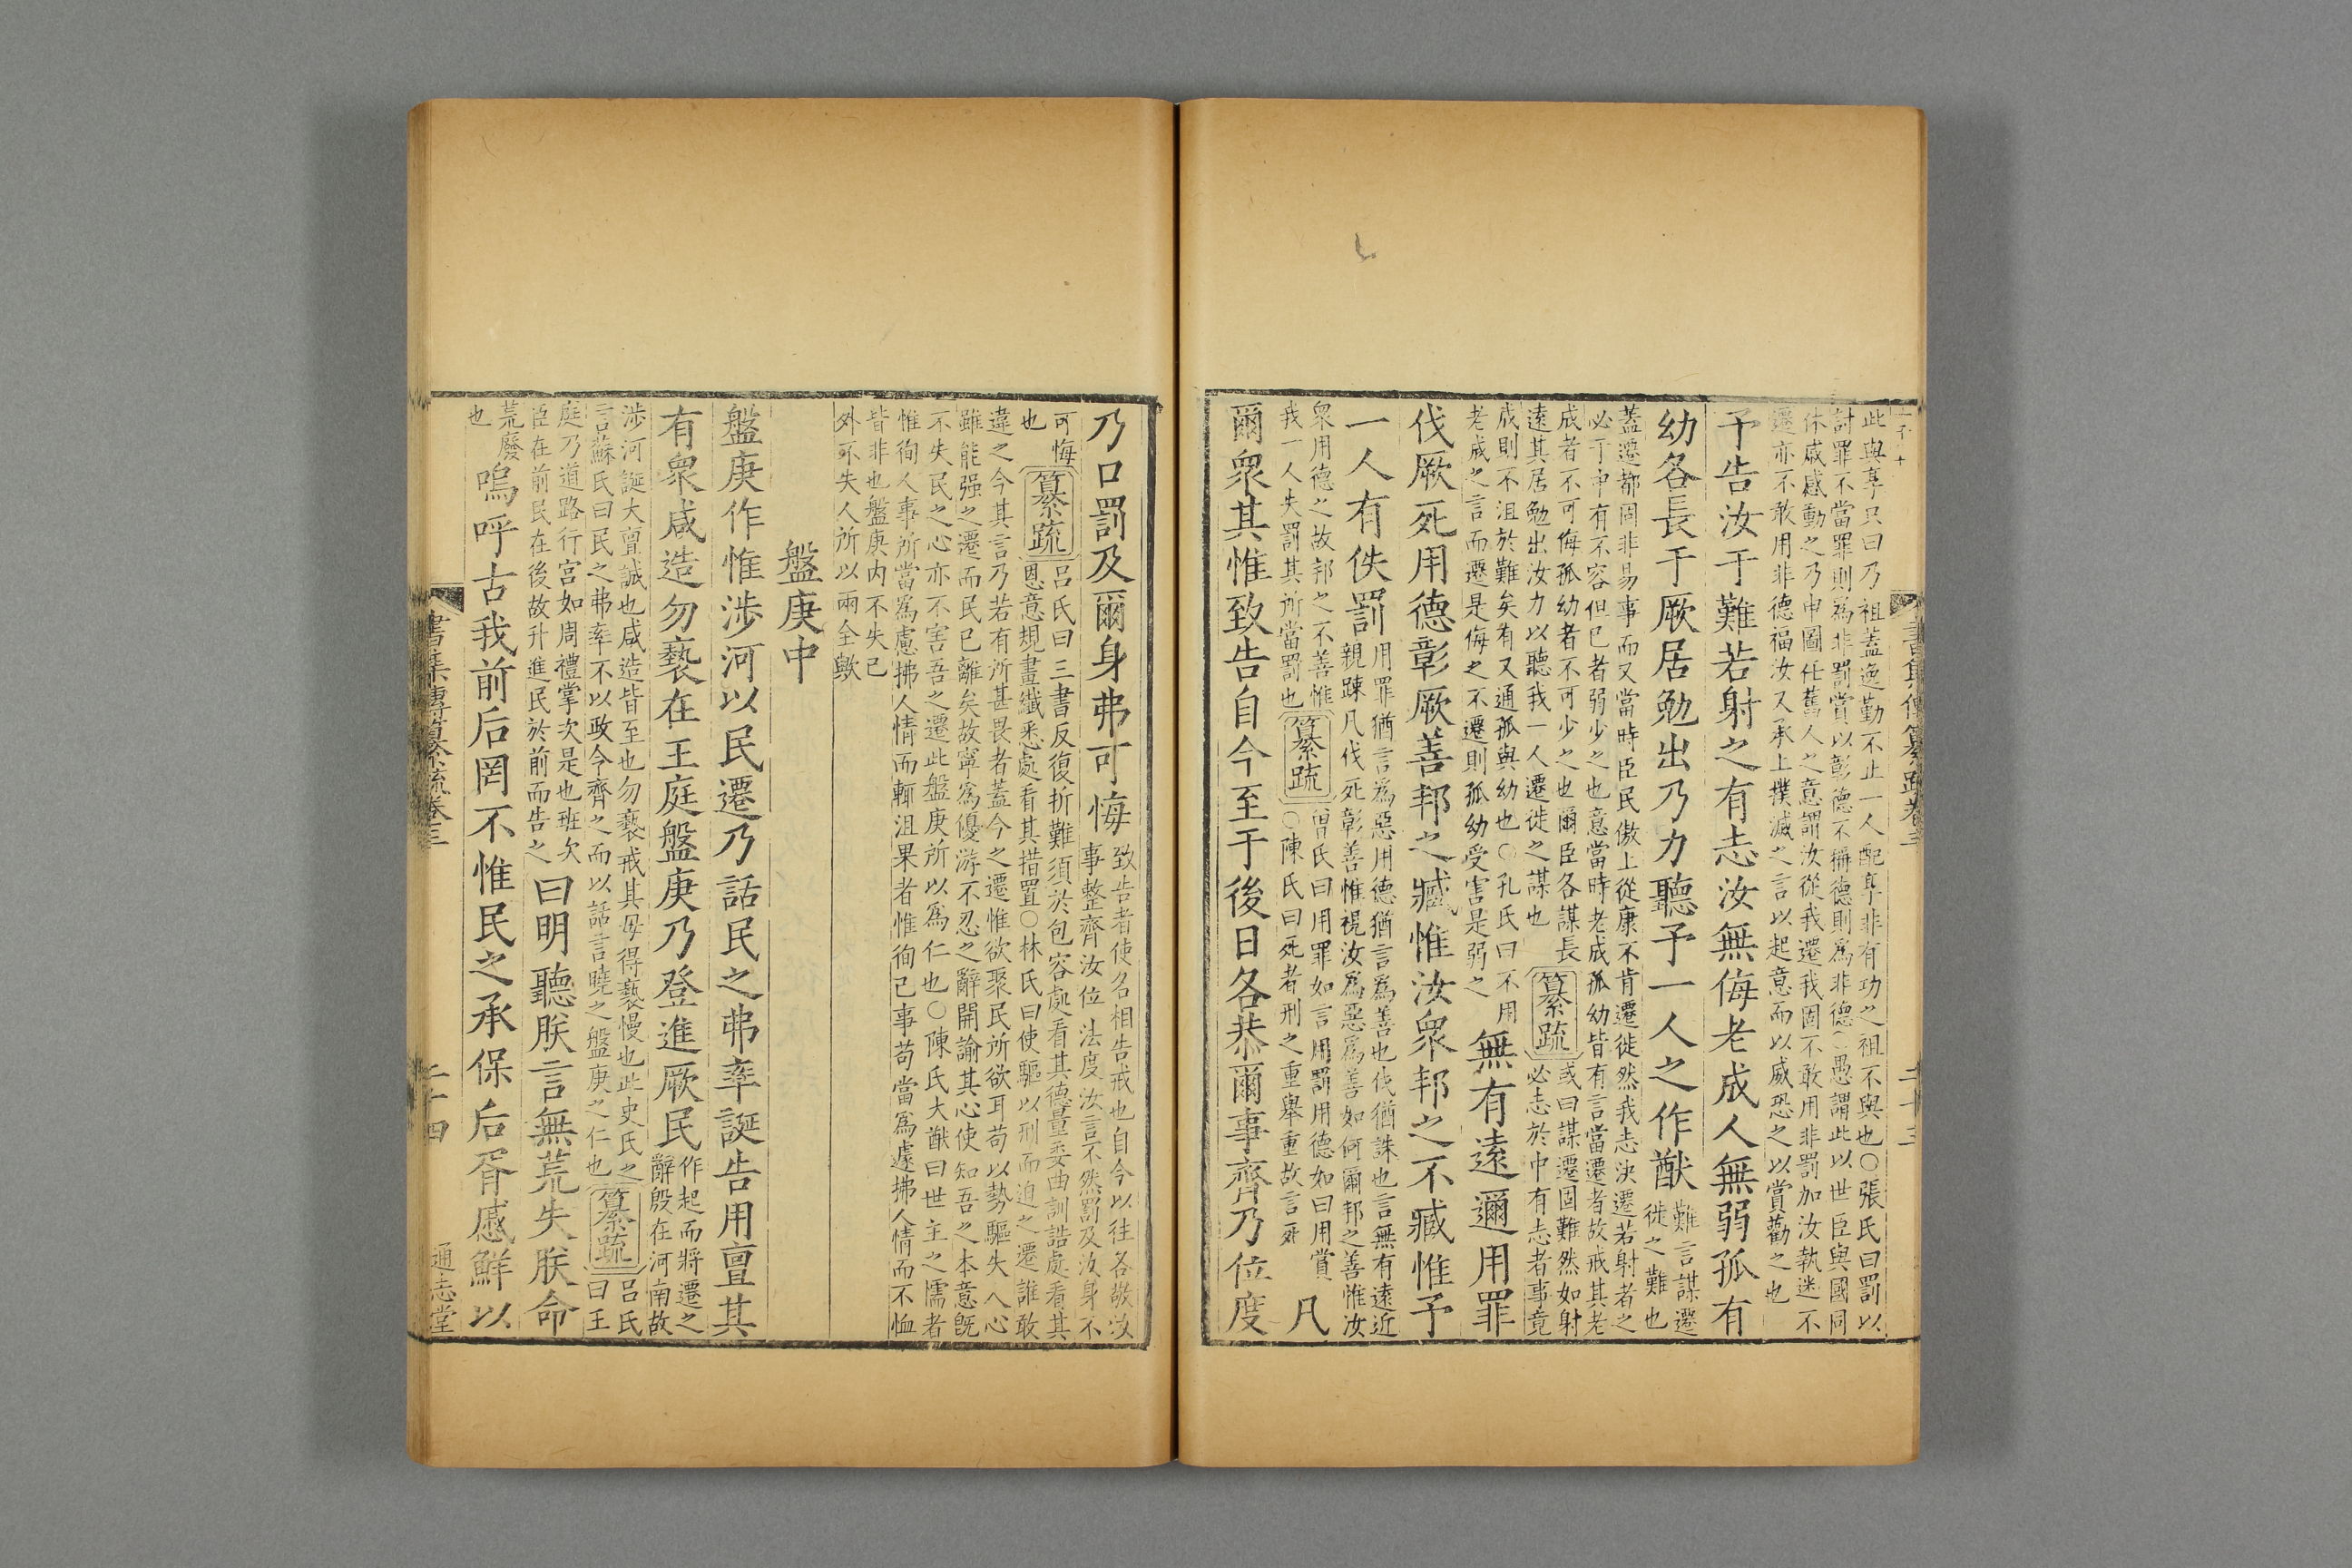 此與享只曰乃祖蓋逸勤不止一人配享非有功之祖不與也○張氏曰罰以
討罪不當罪則為非罰賞以彰德不稱德則為非德○愚謂此以世臣與國同
休戚感動之乃申圖任舊人之意謂汝從我遷我固不敢用非罰加汝執迷不
遷亦不敢用非德福汝又承上撲滅之言以起意而以威恐之以賞勸之也
予告汝于難若射之有志汝無侮老成人無弱孤有
幼各長于厥居勉出乃力聽予一人之作猷
難言謀遷
徙之難也
蓋遷都固非易事而又當時臣民傲上從康不肯遷徙然我志決遷若射者之
必于中有不容但已者弱少之也意當時老成孤幼皆有言當遷者故戒其老
成者不可侮孤幼者不可少之也爾臣各謀長
遠其居勉出汝力以聽我一人遷徙之謀也
纂疏
或曰謀遷固難然如射
必志於中有志者事竟
成則不沮於難矣有又通孤與幼也○孔氏曰不用
老成之言而遷是侮之不遷則孤幼受害是弱之
無有遠邇用罪
伐厥死用德彰厥善邦之臧惟汝衆邦之不臧惟予
一人有佚罰
用罪猶言為惡用德猶言為善也伐猶誅也言無有遠近
親踈凡伐死彰善惟視汝為惡為善如何爾邦之善惟汝
衆用德之故邦之不善惟
我一人失罰其所當罰也
纂疏
曽氏曰用罪如言用罰用德如曰用賞
○陳氏曰死者刑之重舉重故言死
凡
爾衆其惟致告自今至于後日各恭爾事齊乃位度
書集傳纂疏卷三
二十三
乃口罰及爾身弗可悔
致告者使各相告戒也自今以往各敬汝
事整齊汝位法度汝言不然罰及汝身不
可悔
也
纂疏
呂氏曰三書反復折難須於包容處看其德量委曲訓誥處看其
恩意規畫纖悉處看其措置○林氏曰使驅以刑而迫之遷誰敢
違之今其言乃若有所甚畏者蓋今之遷惟欲聚民所欲耳苟以勢驅失人心
雖能强之遷而民已離矣故寧為優游不忍之辭開諭其心使知吾之本意既
不失民之心亦不害吾之遷此盤庚所以為仁也○陳氏大猷曰世主之懦者
惟徇人事所當為慮拂人情而輒沮果者惟徇己事苟當為遽拂人情而不恤
皆非也盤庚内不失己
外不失人所以兩全歟
盤庚中
盤庚作惟涉河以民遷乃話民之弗率誕告用亶其
有衆咸造勿褻在王庭盤庚乃登進厥民
作起而將遷之
辭殷在河南故
涉河誕大亶誠也咸造皆至也勿褻戒其毋得褻慢也此史氏之
言蘇氏曰民之弗率不以政令齊之而以話言曉之盤庚之仁也
纂疏
呂氏
曰王
庭乃道路行宫如周禮掌次是也班次
臣在前民在後故升進民於前而告之
曰明聽朕言無荒失朕命
荒廢
也
嗚呼古我前后罔不惟民之承保后胥慼鮮以
書集傳纂疏卷三
二十四
通志堂